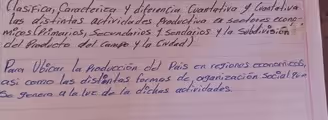 Clasifica, Caracteriza y diferencia Cuantativa y Cualitativa
las distintas actividades Productiva en sectores econo-
micos (Primarios, Secundarios y Sendarios y la Subdivisión
del Producto del Campo y la Ciudad)
Para Ubicar la Producción del País en regiones economicas,
así como las distintas formas de organización Social que
Se genera a la luz de la dichas actividades.